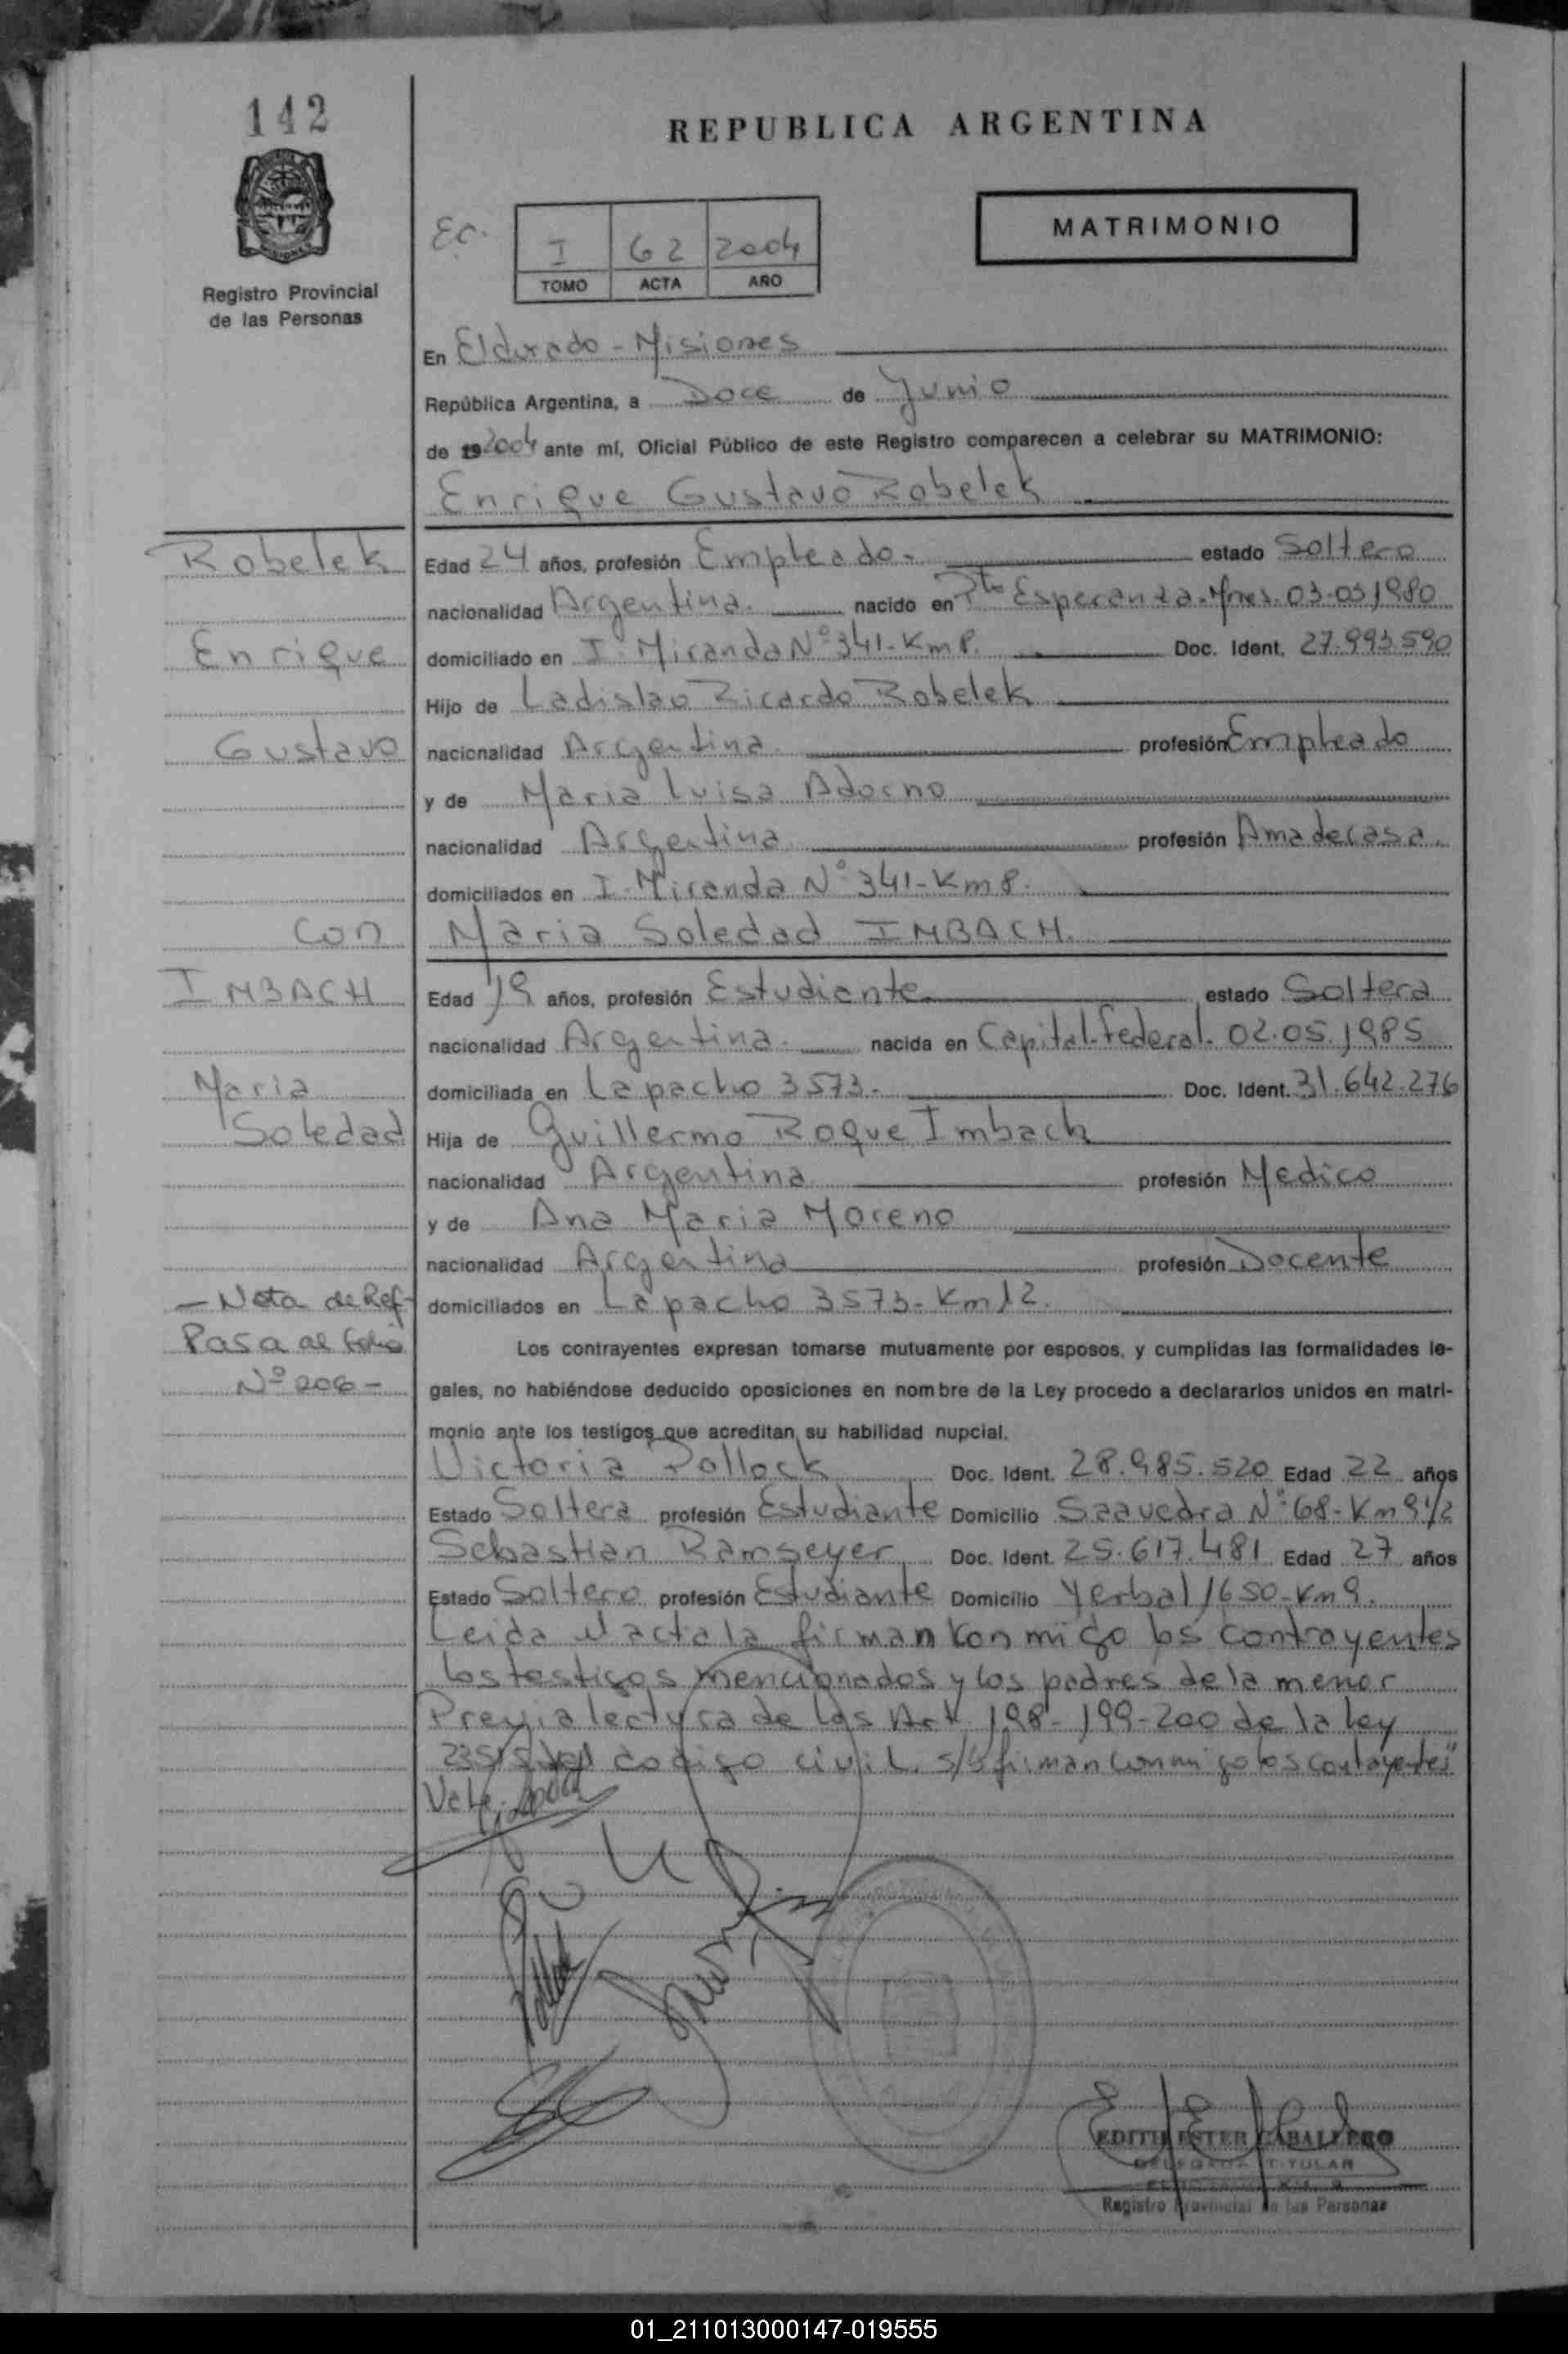 142
REPUBLICA ARGENTINA
MATRIMONIO
Ec.
I 62 2004
TOMO ACTA AÑO
Registro Provincial
de las Personas
En Eldorado - Misiones
República Argentina, a Doce de Junio
de 19 2004 ante mí, Oficial Público de este Registro comparecen a celebrar su MATRIMONIO:
Enrique Gustavo Robelek
Robelek
Enrique
Gustavo
con
IMBACH
Maria
Soledad
- Nota de Ref-
Pasa al folio
Nº 206 -
Edad 24 años, profesión Empleado - estado Soltero
nacionalidad Argentina. nacido en Pto Esperanza-Mnes. 03-03-1980
domiciliado en I. Miranda Nº 341-Km 8. Doc. Ident. 27.993.590
Hijo de Ladislao Ricardo Robelek
nacionalidad Argentina. profesión Empleado
y de Maria Luisa Adorno
nacionalidad Argentina profesión Ama de casa.
domiciliados en I. Miranda Nº 341-Km 8.
Maria Soledad IMBACH.
Edad 19 años, profesión Estudiante estado Soltera
nacionalidad Argentina. nacida en Capital-Federal. 02.05.1985
domiciliada en Lapacho 3573- Doc. Ident. 31.642.276
Hija de Guillermo Roque Imbach
nacionalidad Argentina profesión Medico
y de Ana Maria Moreno
nacionalidad Argentina profesión Docente
domiciliados en Lapacho 3573-Km 12.
Los contrayentes expresan tomarse mutuamente por esposos, y cumplidas las formalidades le-
gales, no habiéndose deducido oposiciones en nombre de la Ley procedo a declararlos unidos en matri-
monio ante los testigos que acreditan su habilidad nupcial.
Victoria Pollock Doc. Ident. 28.985.520 Edad 22 años
Estado Soltera profesión Estudiante Domicilio Saavedra Nº 68-Km 9 1/2
Sebastian Ramseyer Doc. Ident. 25.617.481 Edad 27 años
Estado Soltero profesión Estudiante Domicilio Yerbal 1650-Km 9.
Leida el acta la firman conmigo los contrayentes
los testigos mencionados y los padres de la menor
Previa lectura de los Art. 198-199-200 de la ley
del codigo civil. s/b firman conmigo los contayentes"
Vale.
EDITH ESTER CABALLERO
DELEGADA TITULAR
Registro Provincial de las Personas
01_211013000147-019555